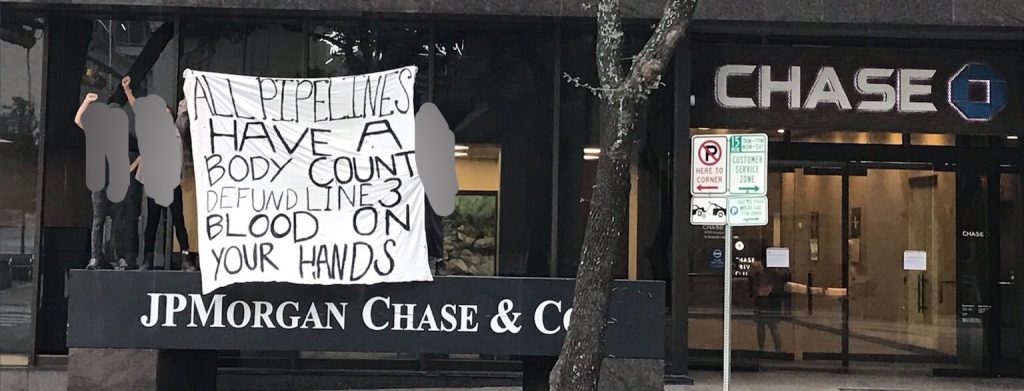 ALL PIPELINES
HAVE A
BODY COUNT
DEFUND LINE 3
BLOOD ON
YOUR HANDS
JPMORGAN CHASE & Co
CHASE
P
HERE TO
CORNER
15
CUSTOMER
SERVICE
ZONE
P
CHASE
CHASE